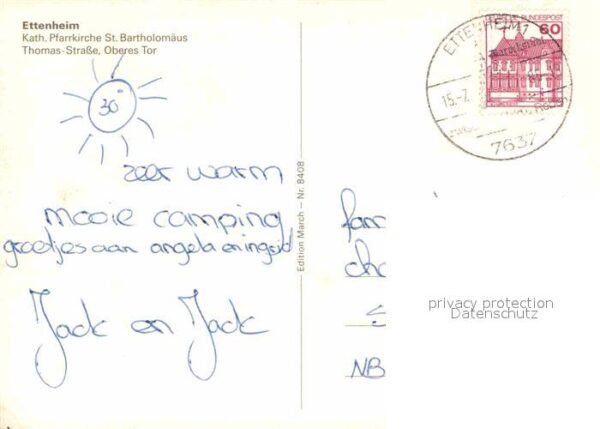 Ettenheim
Kath. Pfarrkirche St. Bartholomäus
Thomas-Straße, Oberes Tor
30°
zeer warm
mooie camping
groetjes aan angela en ingrid
Jack en Jack
Edition March – Nr. 8408
BUNDESPOST
60
ETTENHEIM 1
15.-7.
7637
fam
cha
S
NB
privacy protection
Datenschutz